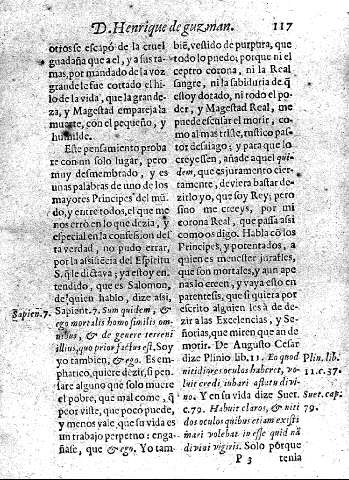 D. Henrique de guzman. 117
otrosse escapó de la cruel
guadaña que a el, y a sus ra-
mas, por mandado de la voz
grande le fue cortado el hi-
lo de la vida, que la grande-
za, y Magestad empareja la
muerte, con el pequeño, y
humilde.
Este pensamiento proba
re con vn solo lugar, pero
muy desmembrado, y es
vnas palabras de vno de los
mayores Principes del mū-
do, y entre todos, el que me
nos erró en lo que dezia, y
especial en la confession del
ta verdad, no pudo errar,
por la assistēcia del Espiritu
S. q̄ le dictava; ya estoy en-
tendido, que es Salomon,
de quien hablo, dize assi,
Sapien. 7.
Sapient. 7. Sum quidem, &
ego mortalis homo similis om-
nibus, & de genere terreni
illius, quo prior factus est. Soy
yo tambien, & ego. Es em-
phatico, quiere dezir, si pen-
sare alguno que solo muere
el pobre, que mal come, q̄
peor viste, que poco puede,
y menos vale, que su vida es
vn trabajo perpetuo: enga-
ñase, que & ego. Yo tam-
biē, vestido de purpura, que
todo lo puedo; porque ni el
ceptro corona, ni la Real
sangre, ni la sabiduria de q̄
estoy dotado, ni todo el po-
der, y Magestad Real, me
puede escusar el morir, co-
mo al mas triste, rustico pas-
tor desaiago; y para que lo
creyessen, añade aquel qui-
dem, que es juramento cier-
tamente, deviera bastar de-
zirlo yo, que soy Rey; pero
sino me creeys, por mi
corona Real, que passa assi
como os digo. Habla cō los
Principes, y potentados, a
quienes menester jurarles,
que son mortales, y aun ape
nas lo creen, y vaya esto en
parentesis, que si quiera por
escrito alguien les à de de-
zir a las Excelencias, y Se-
ñorias, que miren que an de
morir. De Augusto Cesar
dize Plinio lib. 11. Eo quod
Plin. lib.
nitidiores oculos haberet, vo-
11. c. 37.
luit credi inhari astutu divi-
no. Y en su vida dize Suet.
Suet. cap.
c. 79. Habuit claros, & niti
79.
dos oculos quibus etiam existi
mari volebat in esse quid nā
divini vigoris. Solo porque
P 3 tenia